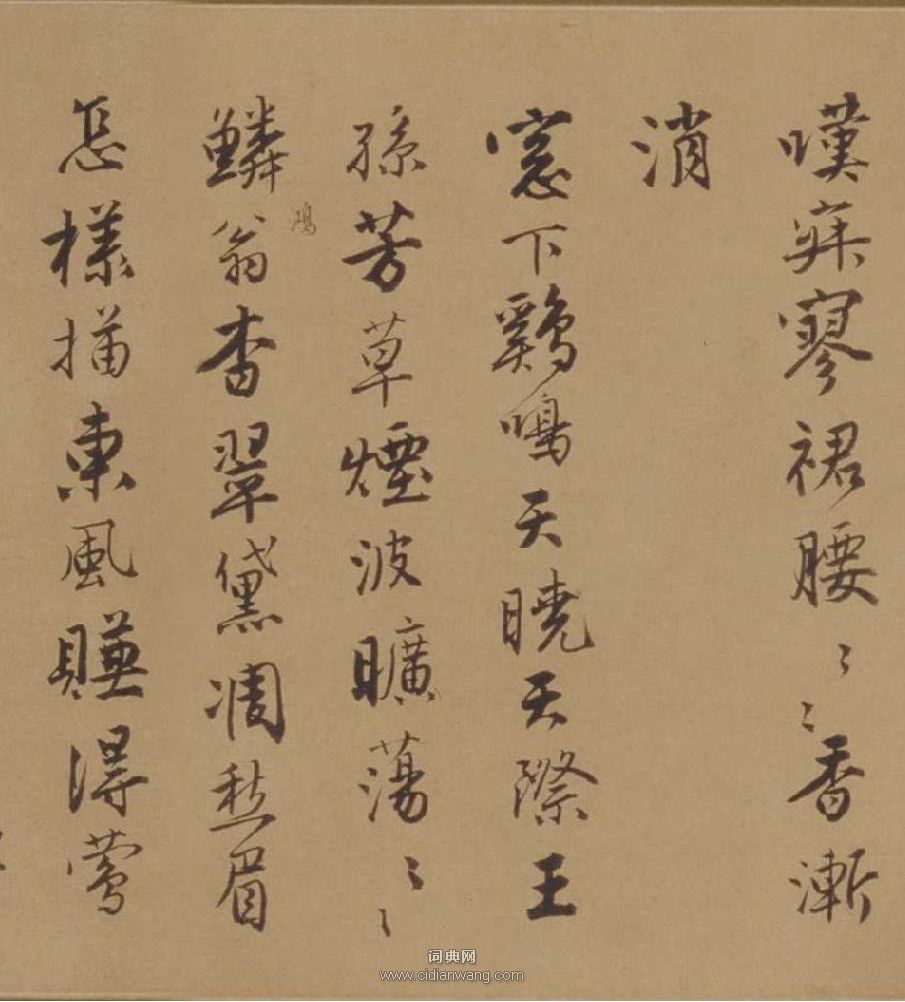 嘆寂寥裙腰〻〻香漸
消
窓下鷄鳴天曉天際王
孫芳草煙波曠蕩〻〻
鴻
鱗翁杳翠黛凋愁眉
怎樣描東風賺得鶯
词典网
www.cidianwang.com